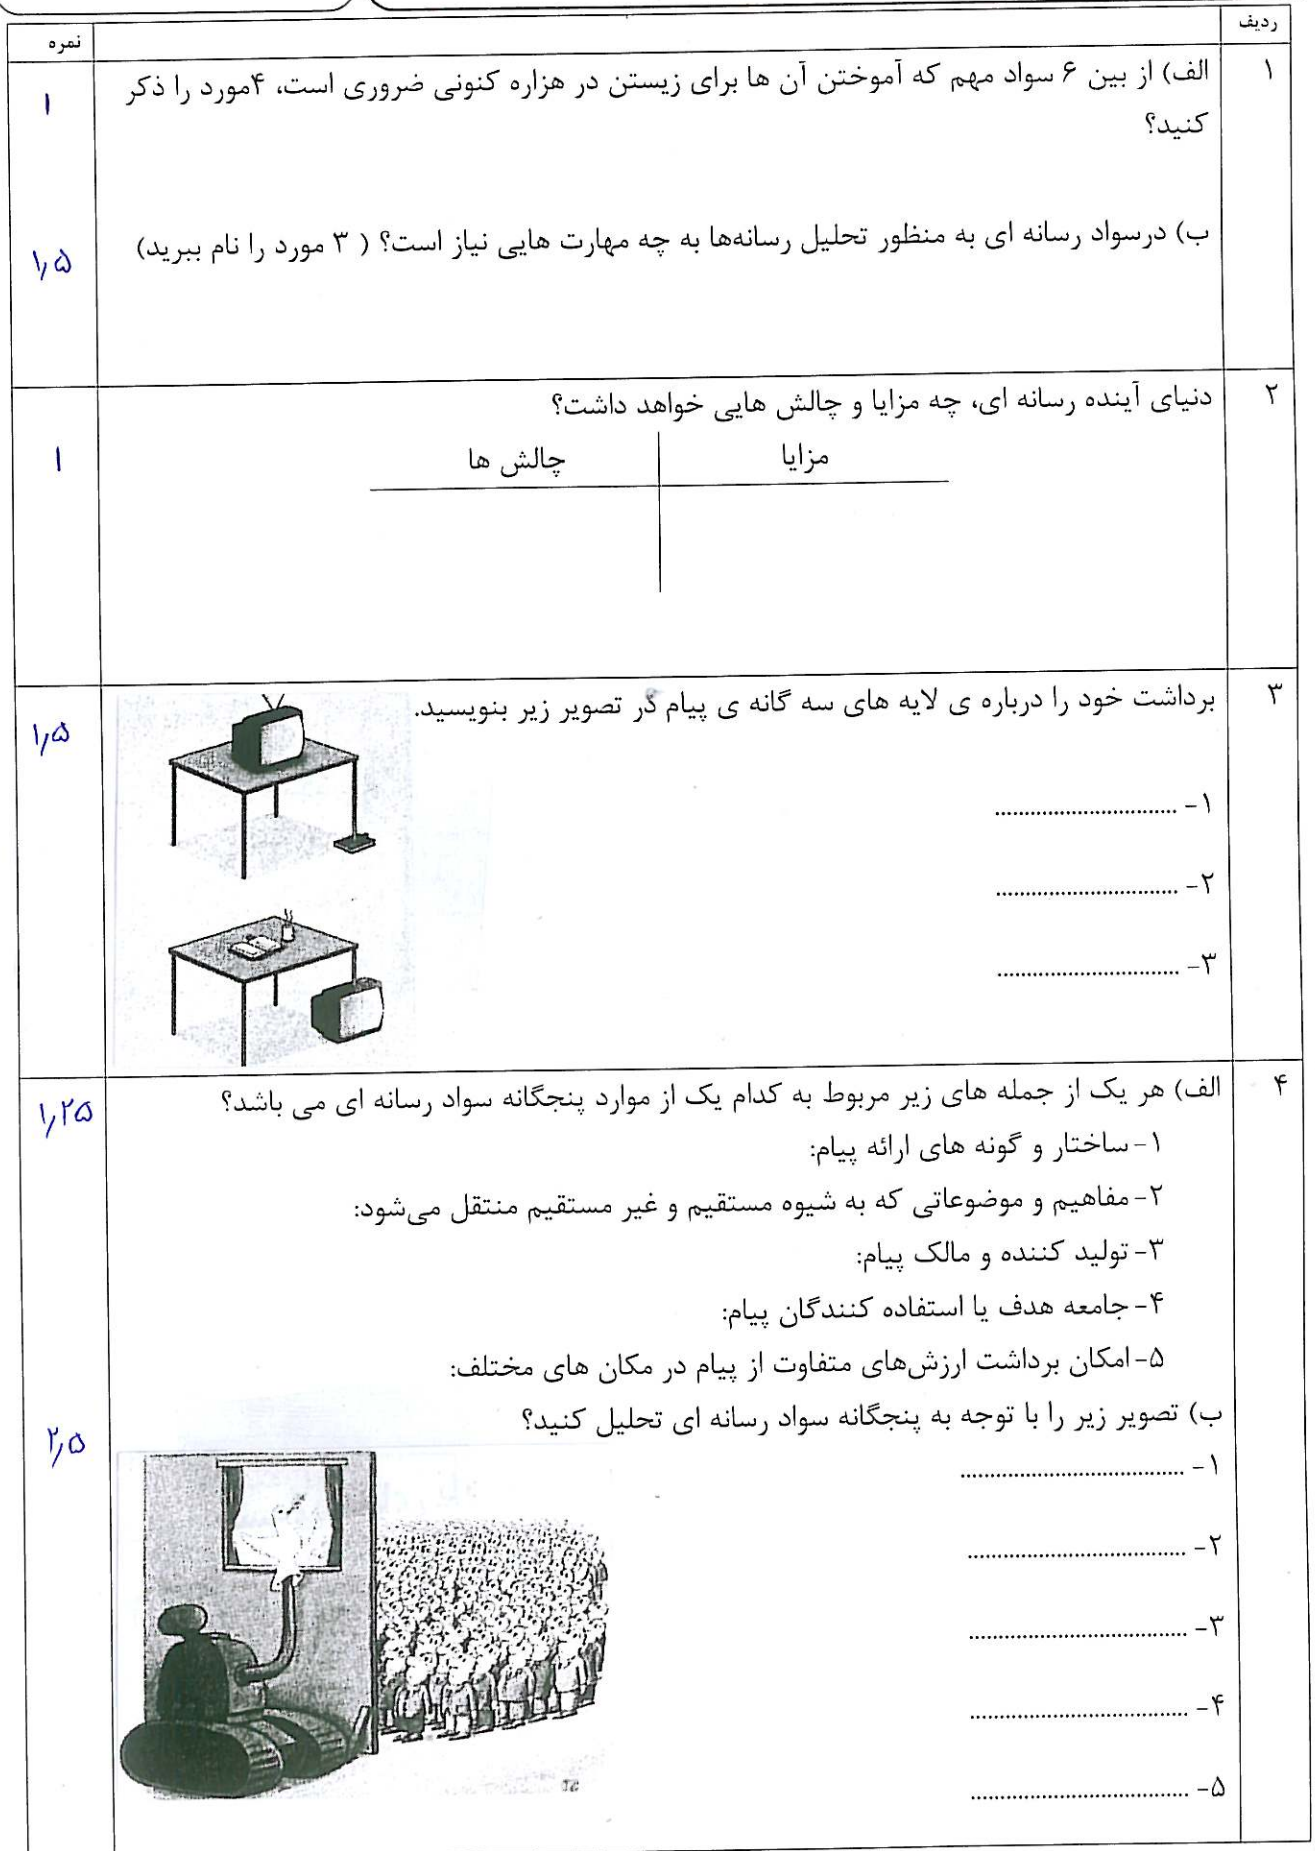 ردیف
نمره
۱
الف) از بین ۶ سواد مهم که آموختن آن ها برای زیستن در هزاره کنونی ضروری است، ۴مورد را ذکر
کنید؟
۱
ب) درسواد رسانه ای به منظور تحلیل رسانه‌ها به چه مهارت هایی نیاز است؟ ( ۳ مورد را نام ببرید)
۱٫۵
۲
دنیای آینده رسانه ای، چه مزایا و چالش هایی خواهد داشت؟
مزایا
چالش ها
۱
۳
برداشت خود را درباره ی لایه های سه گانه ی پیام در تصویر زیر بنویسید.
۱٫۵
۱- ................................
۲- ................................
۳- ................................
۴
الف) هر یک از جمله های زیر مربوط به کدام یک از موارد پنجگانه سواد رسانه ای می باشد؟
۱٫۲۵
۱-ساختار و گونه های ارائه پیام:
۲-مفاهیم و موضوعاتی که به شیوه مستقیم و غیر مستقیم منتقل می‌شود:
۳-تولید کننده و مالک پیام:
۴-جامعه هدف یا استفاده کنندگان پیام:
۵-امکان برداشت ارزش‌های متفاوت از پیام در مکان های مختلف:
ب) تصویر زیر را با توجه به پنجگانه سواد رسانه ای تحلیل کنید؟
۲٫۵
۱- ......................................
۲- ......................................
۳- ......................................
۴- ......................................
۵- ......................................